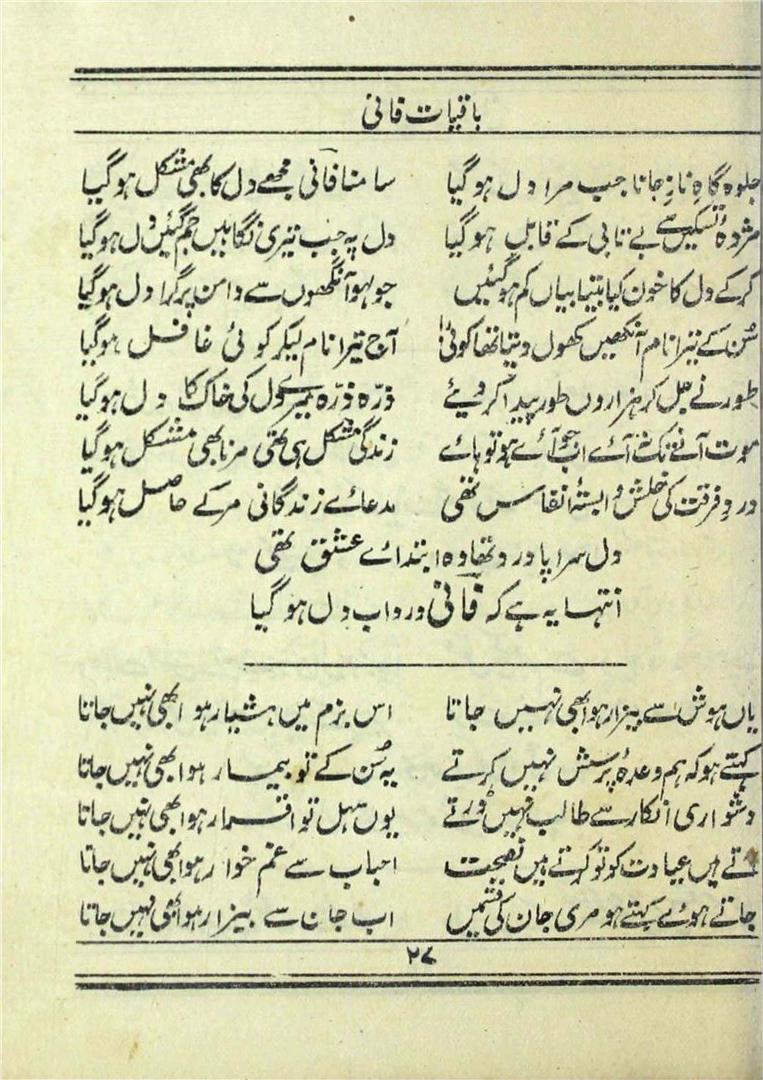 باقیات فانی
جلوہ گاہِ نازِ جاناں جب مرا دل ہو گیا سامنا فانی مجھے دل کا بھی مشکل ہو گیا
مژدۂ تسکیں سے بے تابی کے قابل ہو گیا دل پہ جب تیری نگاہیں جم گئیں دل ہو گیا
کرکے دل کا خون کیا بیتابیاں کم ہو گئیں جو لہو آنکھوں سے دامن پر گرا دل ہو گیا
سُن کے تیرا نام آنکھیں کھول دیتا تھا کوئی آج تیرا نام لیکر کوئی غافل ہو گیا
طور نے جل کر ہزاروں طور پیدا کر دیئے ذرّہ ذرّہ میرے دل کی خاک کا دل ہو گیا
موت آنے تک نہ آئے اب جو آئے ہو تو ہائے زندگی مشکل ہی تھی مرنا بھی مشکل ہو گیا
دردِ فرقت کی خلش وابستۂ انفاس تھی مدعائے زندگانی مرکے حاصل ہو گیا
دل سراپا درد تھا وہ ابتدائے عشق تھی
انتہا یہ ہے کہ فانی درد اب دل ہو گیا
یاں ہوش سے بیزار ہوا بھی نہیں جاتا اس بزم میں ہشیار ہوا بھی نہیں جاتا
کہتے ہو کہ ہم وعدۂ پرسش نہیں کرتے یہ سُن کے تو بیمار ہوا بھی نہیں جاتا
دشواری انکار سے طالب نہیں ڈرتے یوں سہل تو اقرار ہوا بھی نہیں جاتا
آتے ہیں عیادت کو تو کرتے ہیں نصیحت احباب سے غم خوار ہوا بھی نہیں جاتا
جاتے ہوئے کہتے ہو مری جان کی قسمیں اب جان سے بیزار ہوا بھی نہیں جاتا
۲۷